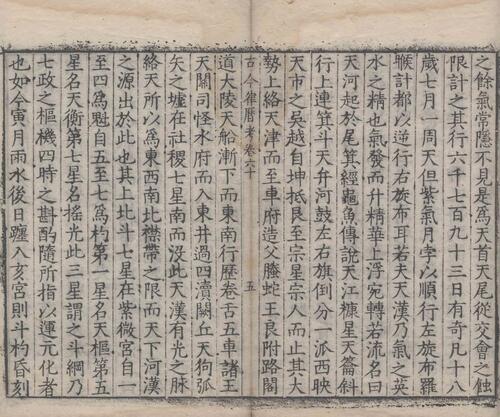 之餘氣常隱不見是爲天首天尾從交會之蝕
限計之其行六千七百九十三日有奇凡十八
歲七月一周天但紫氣月孛以順行左旋布羅
睺計都以逆行右旋布耳若夫天漢乃氣之英
水之精也氣發而升精華上浮宛轉若流名曰
天河起於尾箕經龜魚傅說天江糠星天籥斜
行上連箕斗天弁河鼓左右旗倒分一派西映
天市之吳越自坤抵艮至宗星宗人而止其本
勢上絡天津而至車府造父螣蛇王良附路閣
古今律曆考 卷六十 五
道大陵天船漸下而東南行歷卷舌五車諸王
天關司怪水府而入東井過四瀆闕丘天狗弧
矢之墟在社稷七星南而没此天漢有光之脉
絡天所以爲東西南北襟帶之限而天下河漢
之源出於此也其上北斗七星在紫微宮自一
至四爲魁自五至七爲杓第一星名天樞第五
星名天衡第七星名摇光此三星謂之斗綱乃
七政之樞機四時之斟酌隨所指以運元化者
也如今寅月雨水後日躔入亥宮則斗杓昏刻